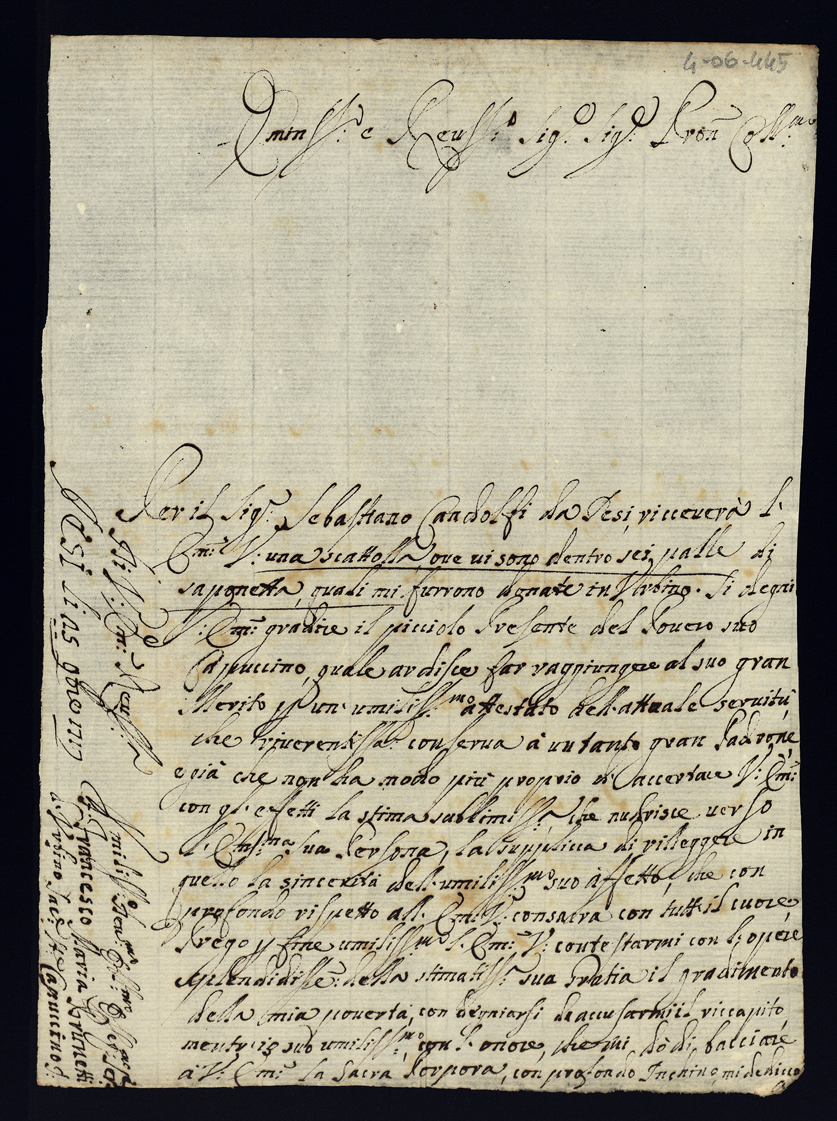 4-06-445
Emin.ss.o e Reu.ss.o Sig.e Sig.e Pron Coll.mo
Per il Sig.r Sebastiano Candolfi da Jesi, riceuerà l'
Em.a V: una scattolla, oue ui sono dentro sei palle di
saponetta, quali mi furrono donate in Vrbino. Si degni
V: Em.a gradire il picciolo Presente del Pouero suo
Capuccino, quale ardisce far raggiungere al suo gran
Merito p un' umiliss.mo attestato dell'attuale seruitù,
che riuerentiss.a conserua à un tanto gran Padrone,
e già che non ha modo più proprio di accertare V: Em.a
con gl'effetti la stima sublimiss.a che nudrisce uerso
l'Em.ma sua Persona, la supplica di rileggere in
quello la sincerità dell'umiliss.mo suo affetto, che con
profondo rispetto all'Em.a V: consacra con tutt'il cuore,
Prego p fine umiliss.mo l'Em.a V: contestarmi con l'opere
splendidiss.e della stimatiss.a sua Gratia il gradimento
della mia pouertà, con degniarsi di accusarmi il riccapito,
mentre io suo umiliss.mo, con l'onore, che mi dò di bacciare
à V: Em.a la Sacra Porpora, con profondo Inchino, mi dedico
Di V: Em.a Reu.ss.a
Jesi li 25
Vmiliss.o
Fr. Francesco Maria
d'Vrbino Capuccino